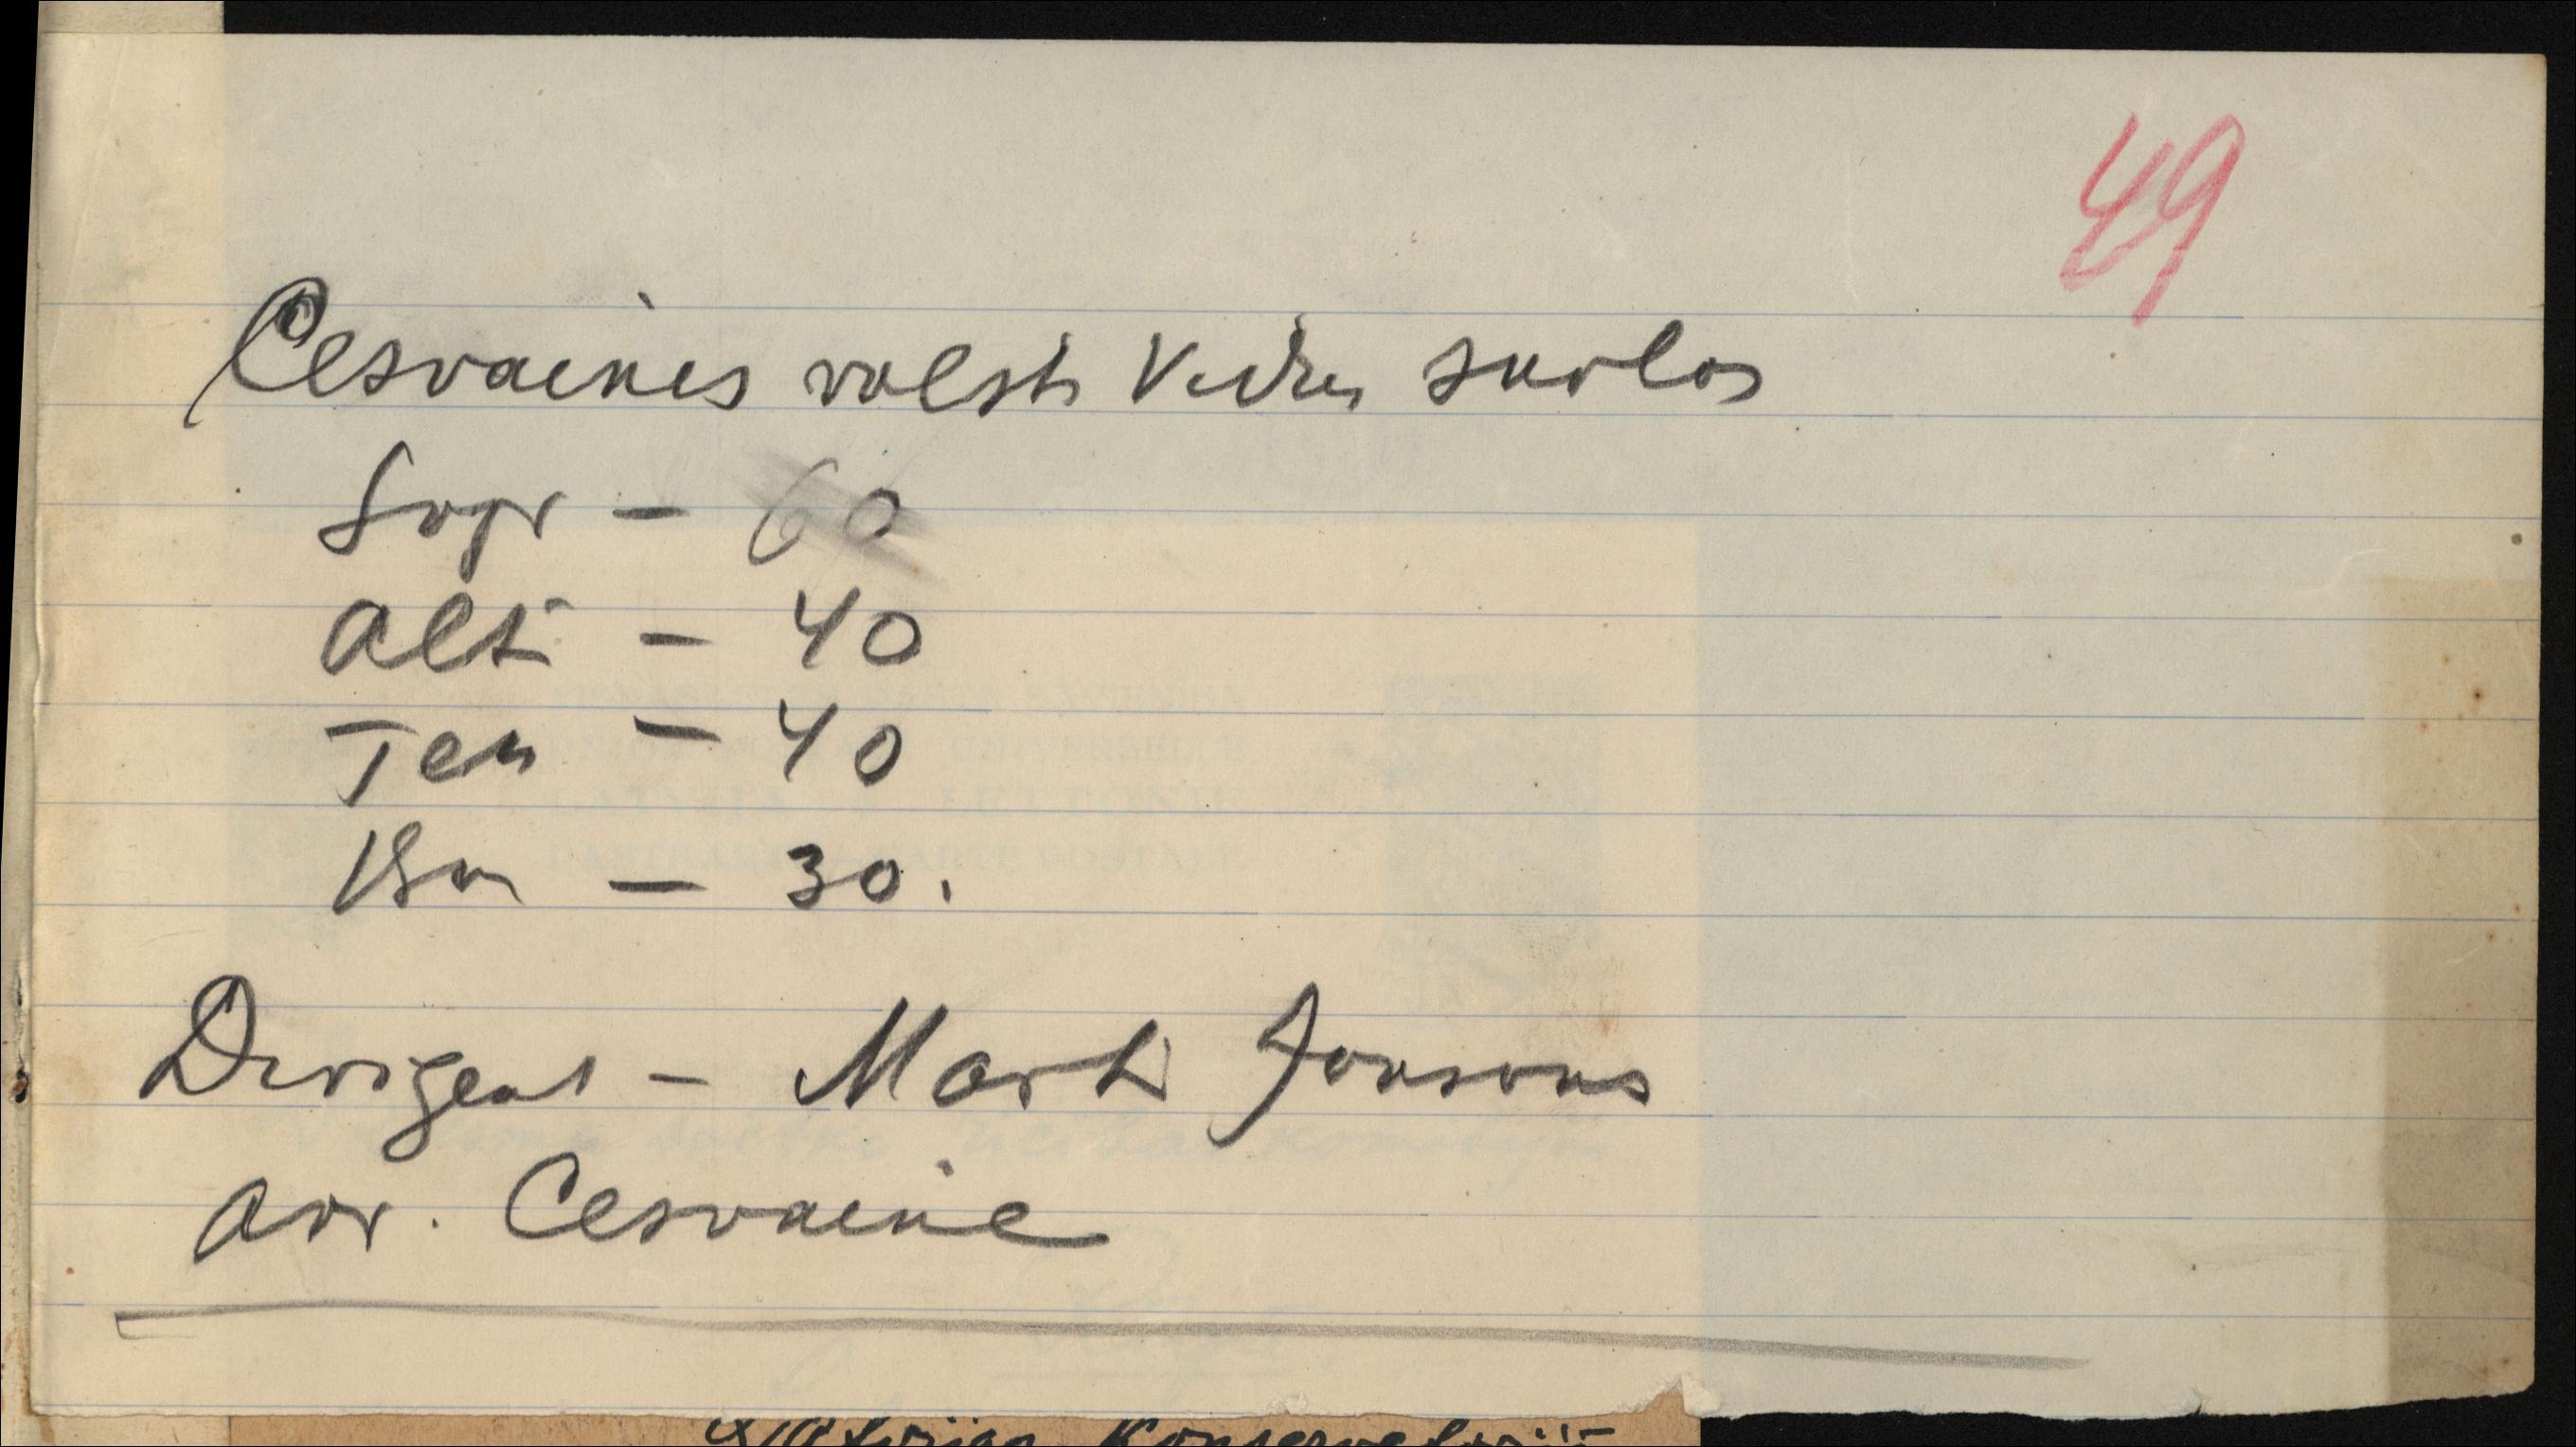 49
Cesvaines valsts Vidus skolas
Sopr – 60
Alti – 40
Ten – 40
Bas – 30.
Dirigents – Mārtiņ Jansons
adr. Cesvaine
Latvijas Konservatorij